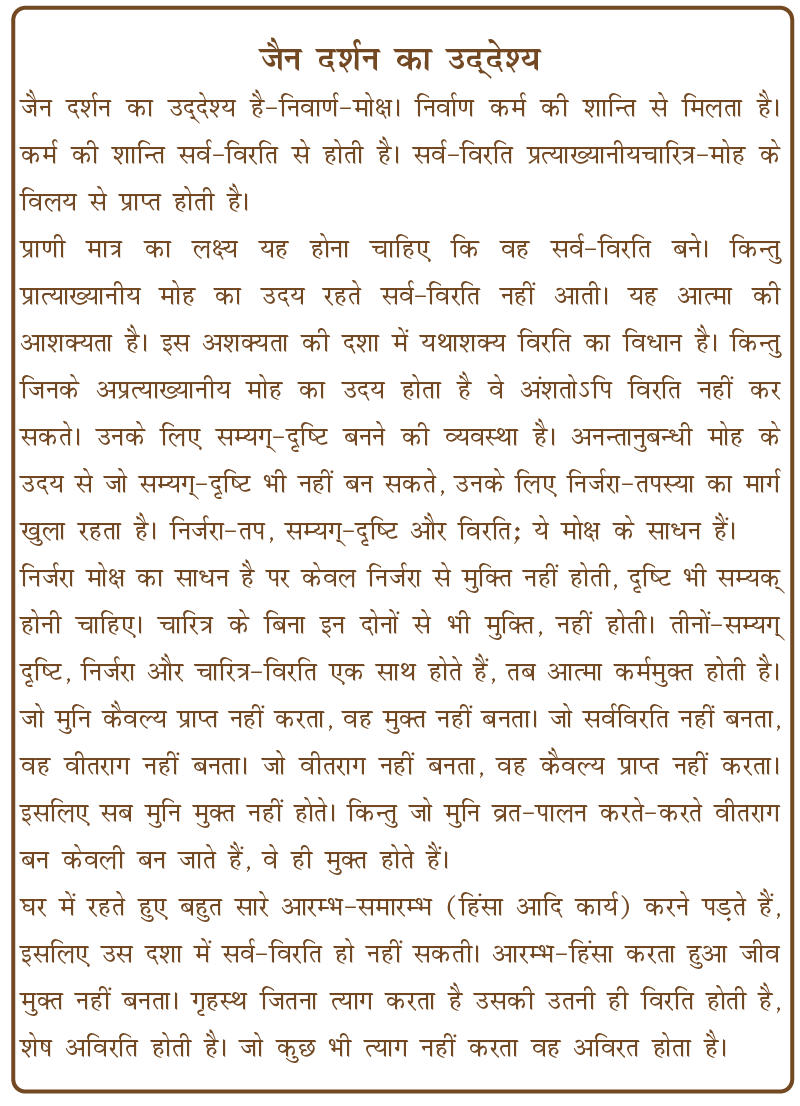 जैन दर्शन का उद्देश्य
जैन दर्शन का उद्देश्य है-निवार्ण-मोक्ष। निर्वाण कर्म की शान्ति से मिलता है।
कर्म की शान्ति सर्व-विरति से होती है। सर्व-विरति प्रत्याख्यानीयचारित्र-मोह के
विलय से प्राप्त होती है।
प्राणी मात्र का लक्ष्य यह होना चाहिए कि वह सर्व-विरति बने। किन्तु
प्रात्याख्यानीय मोह का उदय रहते सर्व-विरति नहीं आती। यह आत्मा की
आशक्यता है। इस अशक्यता की दशा में यथाशक्य विरति का विधान है। किन्तु
जिनके अप्रत्याख्यानीय मोह का उदय होता है वे अंशतोऽपि विरति नहीं कर
सकते। उनके लिए सम्यग्-दृष्टि बनने की व्यवस्था है। अनन्तानुबन्धी मोह के
उदय से जो सम्यग्-दृष्टि भी नहीं बन सकते, उनके लिए निर्जरा-तपस्या का मार्ग
खुला रहता है। निर्जरा-तप, सम्यग्-दृष्टि और विरति; ये मोक्ष के साधन हैं।
निर्जरा मोक्ष का साधन है पर केवल निर्जरा से मुक्ति नहीं होती, दृष्टि भी सम्यक्
होनी चाहिए। चारित्र के बिना इन दोनों से भी मुक्ति, नहीं होती। तीनों-सम्यग्
दृष्टि, निर्जरा और चारित्र-विरति एक साथ होते हैं, तब आत्मा कर्ममुक्त होती है।
जो मुनि कैवल्य प्राप्त नहीं करता, वह मुक्त नहीं बनता। जो सर्वविरति नहीं बनता,
वह वीतराग नहीं बनता। जो वीतराग नहीं बनता, वह कैवल्य प्राप्त नहीं करता।
इसलिए सब मुनि मुक्त नहीं होते। किन्तु जो मुनि व्रत-पालन करते-करते वीतराग
बन केवली बन जाते हैं, वे ही मुक्त होते हैं।
घर में रहते हुए बहुत सारे आरम्भ-समारम्भ (हिंसा आदि कार्य) करने पड़ते हैं,
इसलिए उस दशा में सर्व-विरति हो नहीं सकती। आरम्भ-हिंसा करता हुआ जीव
मुक्त नहीं बनता। गृहस्थ जितना त्याग करता है उसकी उतनी ही विरति होती है,
शेष अविरति होती है। जो कुछ भी त्याग नहीं करता वह अविरत होता है।